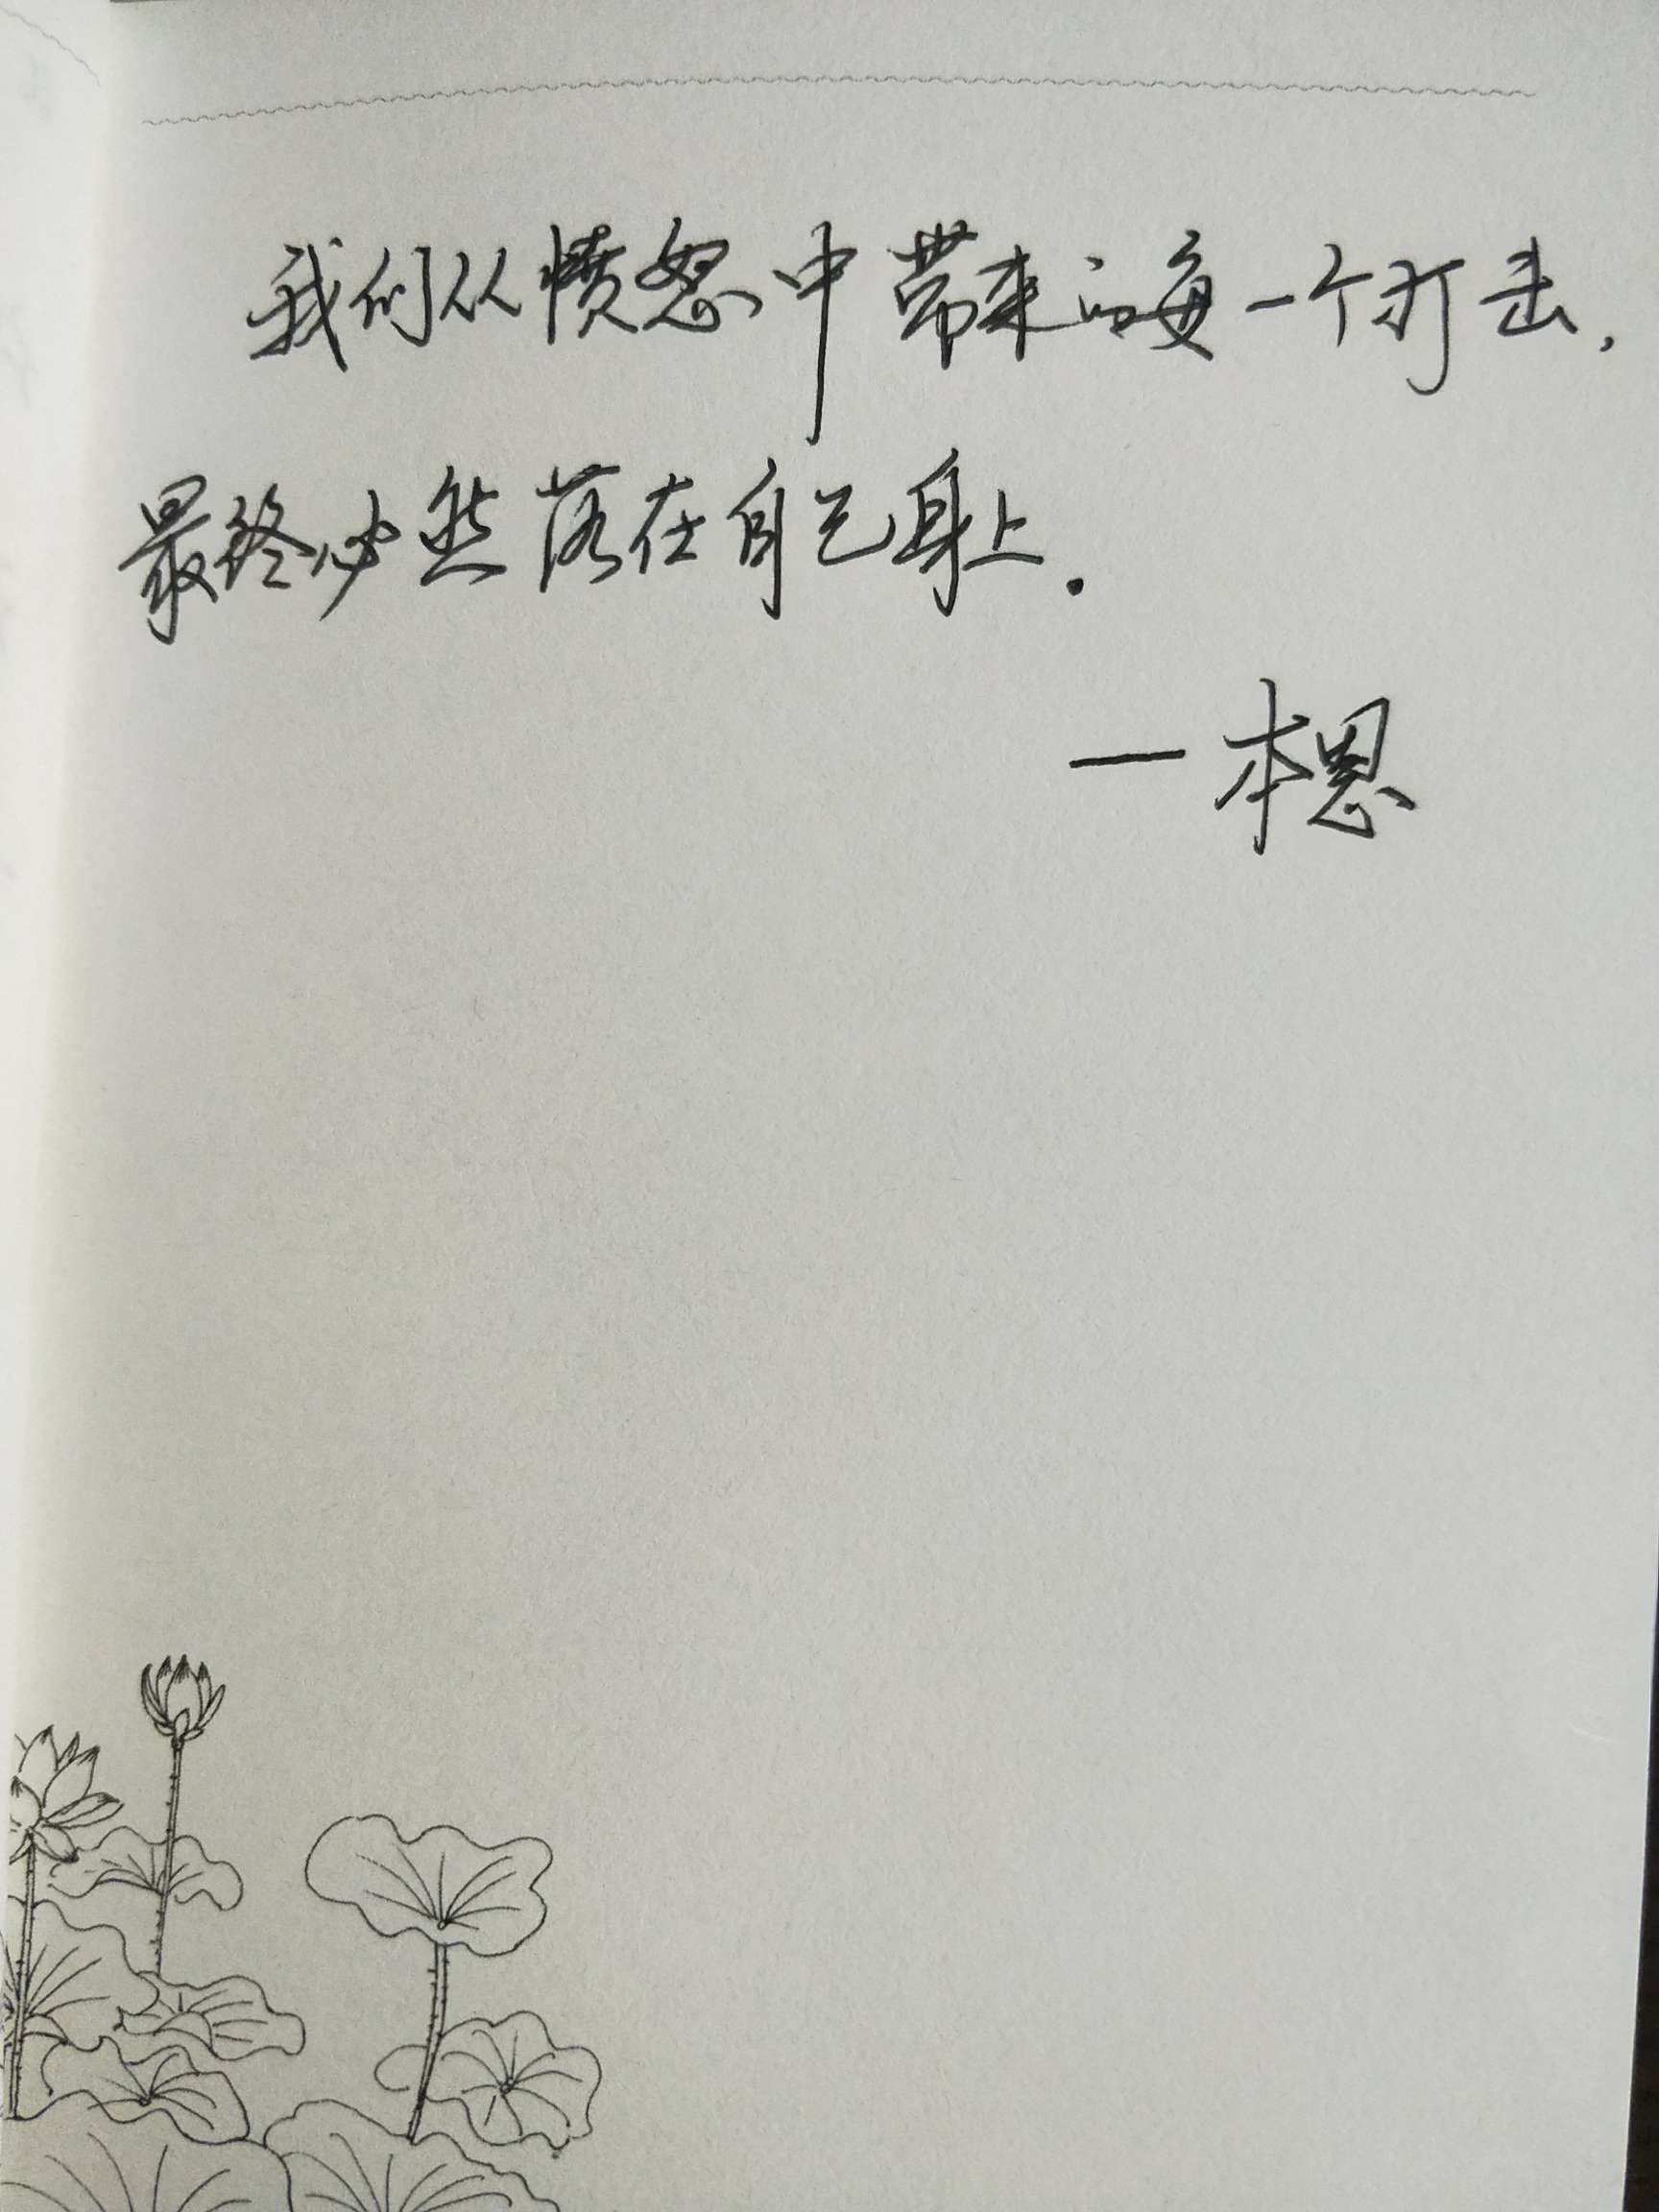 我们从愤怒中带来的每一个打击,
最终必然落在自己身上.
一本恩